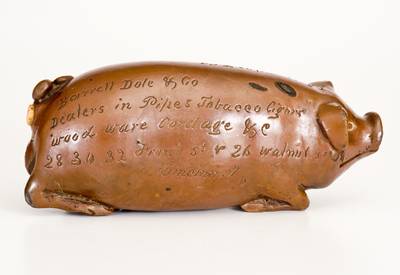 Borrell Dole & Co
Dealers in Pipes Tobacco Cigars
wood ware Cordage & C
28 30 32 Front St & 26 walnut